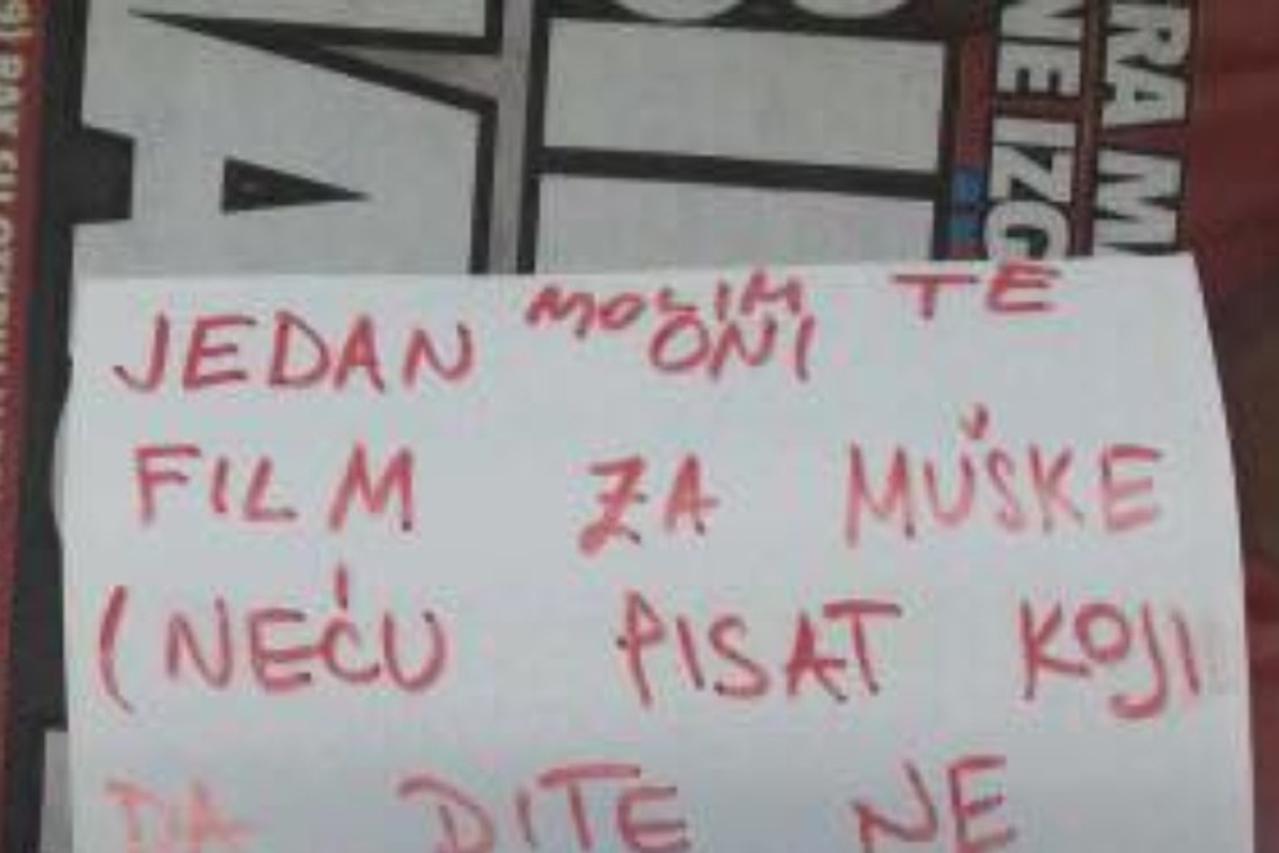 MOLIM TE
JEDAN ONI
FILM ZA MUŠKE
(NEĆU PISAT KOJI
DA DITE NE
RAM
NE IZG